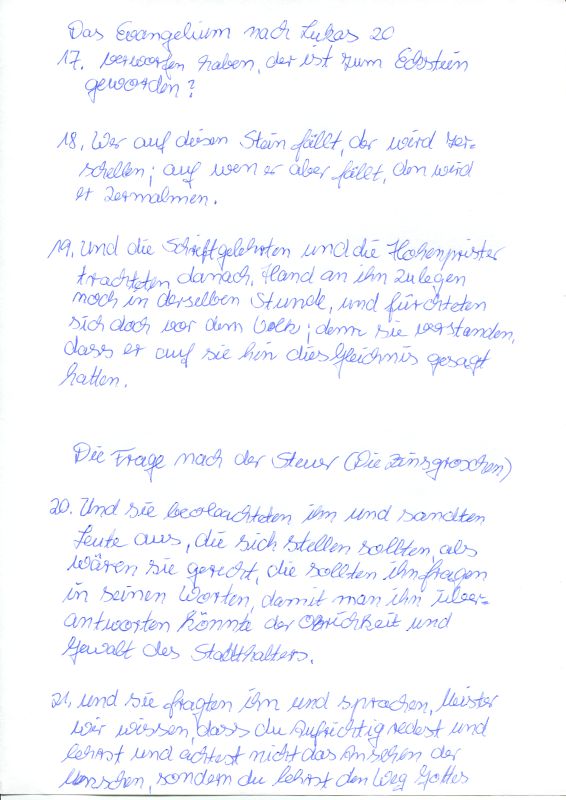 Das Evangelium nach Lukas 20
17. verworfen haben, der ist zum Eckstein
geworden?
18. Wer auf diesen Stein fällt, der wird zer-
schellen; auf wen er aber fällt, den wird
er zermalmen.
19. Und die Schriftgelehrten und die Hohenprister
trachteten danach, Hand an ihn zulegen
noch in derselben Stunde, und fürchteten
sich doch vor dem Volk; denn sie verstanden,
dass er auf sie hin dies Gleichnis gesagt
hatten.
Die Frage nach der Steuer (Die Zinsgroschen)
20. Und sie beobachteten ihn und sandten
Leute aus, die sich stellen sollten, als
wären sie gerecht, die sollten ihn fragen
in seinen Worten, damit man ihn über-
antworten könnte der Obrichkeit und
Gewalt des Statthalters.
21. und sie fragten ihn und sprachen, Meister
wir wissen, dass du Aufrichtig redest und
lehrst und achtest nicht das Ansehen der
Menschen, sondern du lehrst den Weg Gottes